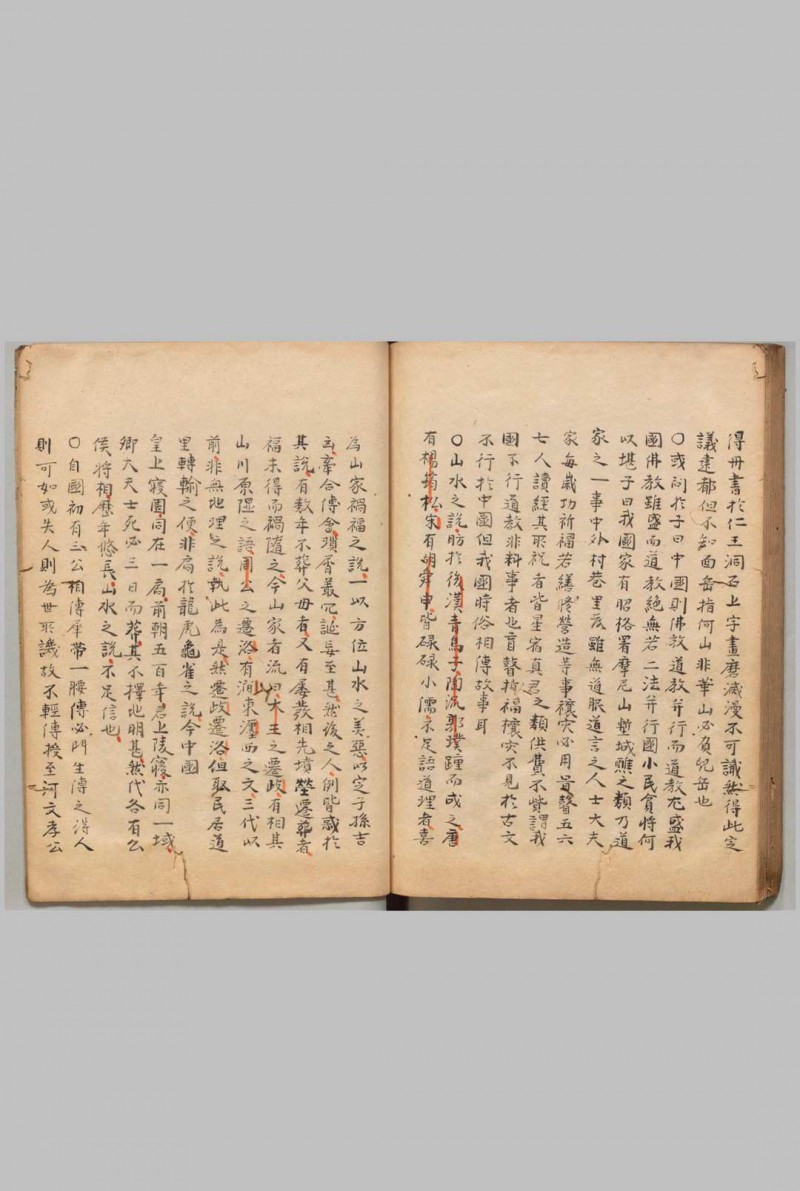 得丹書於仁王洞石上字畫磨滅漫不可識然得此定
議建都但不知面岳指何山非華山必負兒岳也
〇或問於子曰中國則佛教道教并行而道教尤盛我
國佛教雖盛而道教絶無若二法并行國小民貪將何
以堪子曰我國家有昭格署摩尼山塹城醮之類乃道
家之一事中外村巷里氓雖無道服道言之人士大夫
家每歲功祈福若繕修營造等事禳灾必用盲瞽五六
七人讀經其所祝者皆星宿真君之類供費不貲謂我
國不行道教非料事者也盲瞽祈福禳灾不見於古文
不行於中國但我國時俗相傳故事耳
〇山水之說昉於後漢青烏子陶沉郭璞踵而成之唐
有楊筠松宋有胡舜申皆碌碌小儒不足語道理者喜
為山家禍福之說一以方位山水之美惡以定子孫吉
凶牽合傅會𤨏屑最冗誕妄至甚然後之人例皆惑於
其說有數年不葬父母者又有屢發相先墳塋遷葬者
福未得而禍隨之今山家者流曰木主之遷政有相其
山川原隰之語周公之遷洛有澗東瀍西之文三代以
前非無地理之說執此為是然遷政遷洛但取民居道
里轉輸之便非局於龍虎龜雀之說今中國
皇上寢園同在一局前朝五百年君上陵寢亦同一域
卿大夫士死必三日而葬其不擇地明甚然代各有公
侯將相歷年悠長山水之說不足信也
〇自國初有三公相傳犀帶一腰傳必門生傳之得人
則可如或失人則為世所譏故不輕傳授至河文孝公